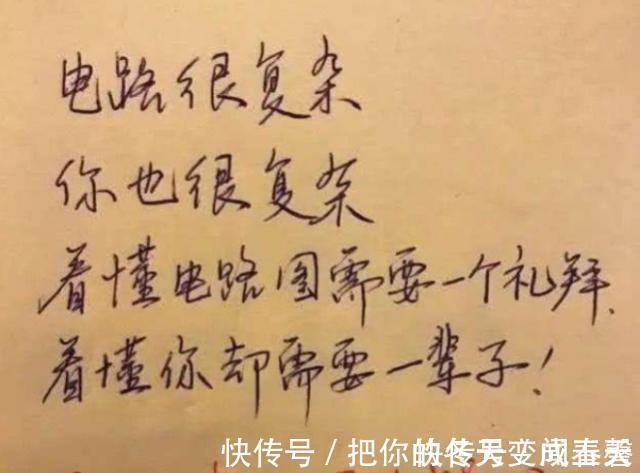 电路很复杂
你也很复杂
看懂电路图需要一个礼拜.
看懂你却需要一辈子!
快传号/把你的冬天变成春天